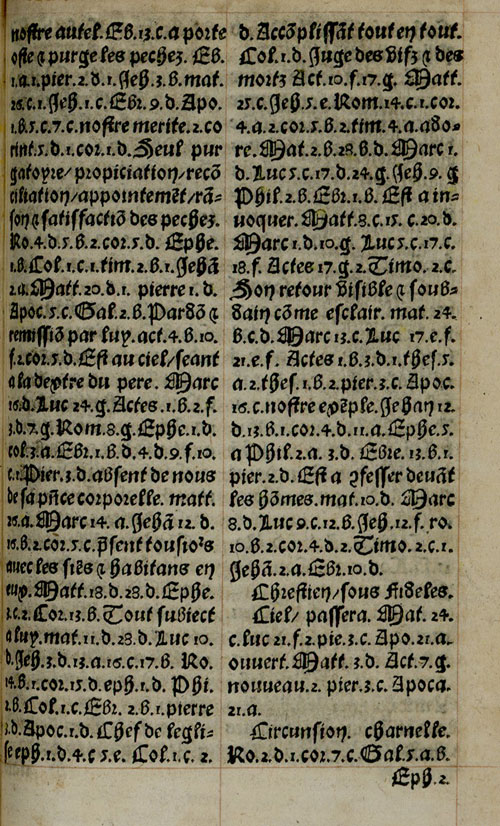 nostre autel. Eb. 13. c. a porte
oste ⁊ purge les pechez. Eb.
1. a. 1. pier. 2. d. 1. Jeh. 3. b. mat.
26. c. 1. Jeh. 1. c. Ebr. 9. d. Apo.
1. b. 5. c. 7. c. nostre merite. 2. co
rint. 5. d. 1. cor. 1. d. Seul pur
gatoyre/ propiciation/ recō
ciliation/ appointemēt/ rā-
son ⁊ satisfactiō des pechez.
Ro. 4. d. 5. b. 2. cor. 5. d. Ephe.
1. b. Col. 1. c. 1. tim. 2. b. 1. Jehā
2. a. Matt. 20. d. 1. pierre 1. d.
Apoc. 5. c. Gal. 2. b. Pardō ⁊
remissiō par luy. act. 4. b. 10.
f. 2. cor. 5. d. Est au ciel/ seant
a la dextre du pere. Marc
16. d. Luc 24. g. Actes. 1. b. 2. f.
3. d. 7. g. Rom. 8. g. Ephe. 1. d.
col. 3. a. Ebr. 1. b. d. 4. d. 9. f. 10.
c. 1. Pier. 3. d. absent de nous
de sa pñce corporelle. matt.
26. a. Marc 14. a. Jehā 12. d.
16. b. 2. cor. 5. c. p̄sent tousiors
auec les siēs ⁊ habitans en
eux. Matt. 18. d. 28. d. Ephe.
3. c. 2. Cor. 13. b. Tout subiect
a luy. mat. 11. d. 28. d. Luc 10.
d. Jeh. 3. d. 13. a. 16. c. 17. b. Ro.
14. b. 1. cor. 15. d. eph. 1. d. Phi.
2. b. Col. 1. c. Ebr. 2. b. 1. pierre
3. d. Apoc. 1. d. Chef de legli-
se eph. 1. d. 4. c 5. e. Col. 1. c. 2.
d. Accōplissāt tout en tout.
Col. 1. d. Juge des vifz ⁊ des
mortz Act. 10. f. 17. g. Matt.
25. c. Jeh. 5. e. Rom. 14. c. 1. cor.
4. a. 2. cor. 5. b. 2. tim. 4. a. ado-
re. Mat. 2. b. 28. b. d. Marc 1.
d. Luc 5. c. 17. d. 24. g. Jeh. 9. g
Phil. 2. b. Ebr. 1. b. Est a in-
uoquer. Matt. 8. c. 15. c. 20. d.
Marc 1. d. 10. g. Luc 5. c. 17. c.
18. f. Actes 17. g. 2. Timo. 2. c.
Son retour visible ⁊ soub-
dain cōme esclair. mat. 24.
b. c. d. Marc 13. c. Luc 17. e. f.
21. e. f. Actes 1. b. 3. d. 1. thes. 5.
a. 2. thes. 1. b. 2. pier. 3. c. Apoc.
16. c. nostre exēple. Jehan 12.
d. 13. b. 1. cor. 4. d. 11. a. Ephe. 5.
a Phil. 2. a. 3. d. Ebre. 13. b. 1.
pier. 2. d. Est a ꝯfesser deuāt
les hōmes. mat. 10. d. Marc
8. d. Luc 9. c. 12. b. Jeh. 12. f. ro.
10. b. 2. cor. 4. d. 2. Timo. 2. c. 1.
Jehā. 2. a. Ebr. 10. d.
Chrestien/ sous fideles.
Ciel/ passera. Mat. 24.
c. luc 21. f. 2. pie. 3. c. Apo. 21. a.
ouuert. Matt. 3. d. Act. 7. g.
nouueau. 2. pier. 3. c. Apoca.
21. a.
Circunsion. charnelle.
Ro. 2. d. 1. cor. 7. c. Gal. 5. a. b.
Eph. 2.